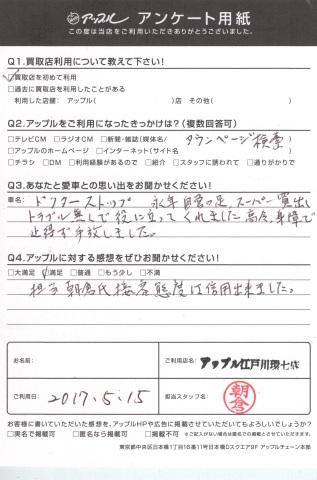 アップル アンケート用紙
この度は当店をご利用いただきありがとうございました。
Q1.買取店利用について教えて下さい!
☑買取店を初めて利用
□過去に買取店を利用したことがある
利用した店舗: アップル( )店 その他( )
Q2.アップルをご利用になったきっかけは?(複数回答可)
□テレビCM □ラジオCM □新聞・雑誌(媒体名/ タウンページ検索 )
□アップルのホームページ □インターネット(サイト名 )
□チラシ □DM □利用経験があるので □紹介 □スタッフに誘われて □通りがかりで
Q3.あなたと愛車との思い出をお聞かせください!
車名: ドクターストップ 永年自宅の足,スーパー買出し
トラブル無しで役に立ってくれました 高令,身障で
止得ず手放しました。
Q4.アップルに対する感想をぜひお聞かせください!
□大満足 ☑満足 □普通 □もう少し □不満
担当 朝倉氏 接客態度は信用出来ました。
お名前:
ご利用店名: アップル江戸川環七店
ご利用日: 2017.5.15
担当スタッフ名: 朝倉
お客様に書いていただいた感想を、アップルHPや広告に掲載させていただいてもよろしいでしょうか?
□実名で掲載可 □匿名なら掲載可 □掲載不可 ※ご記入がない場合は匿名での掲載とさせていただきます。
東京都中央区日本橋1丁目16番11号日本橋Dスクエア9F アップルチェーン本部